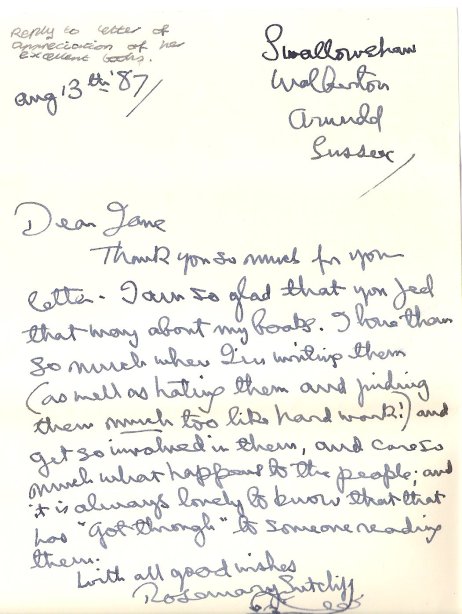 Reply to letter of
appreciation of her
excellent books.
Aug 13th '87
Swallowshaw
Walberton
Arundel
Sussex
Dear Jane
Thank you so much for your
letter. I am so glad that you feel
that way about my books. I love them
so much when I'm writing them
(as well as hating them and finding
them much too like hard work!) and
get so involved in them, and care so
much what happens to the people; and
it is always lovely to know that that
has "got through" to someone reading
them.
With all good wishes
Rosemary Sutcliff